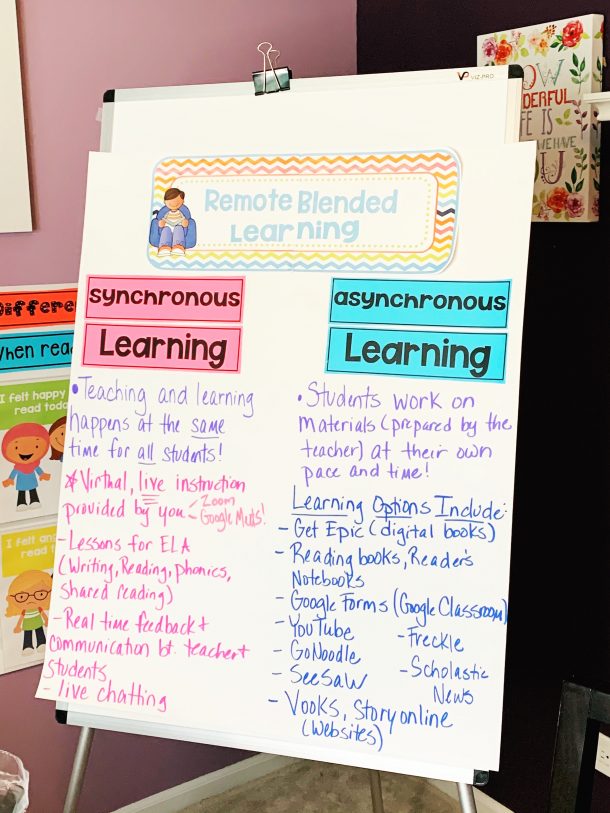 VIZ-PRO
Remote Blended
Learning
synchronous
Learning
• Teaching and learning
happens at the same
time for all students!
* Virtual, live instruction
provided by you - Zoom
- Google Meets!
- Lessons for ELA
(Writing, Reading, phonics,
shared reading)
- Real time feedback +
communication bt. teacher +
students
- live chatting
asynchronous
Learning
• Students work on
materials (prepared by the
teacher) at their own
pace and time!
Learning Options Include:
- Get Epic (digital books)
- Reading books, Reader's
Notebooks
- Google Forms (Google Classroom)
- YouTube
- GoNoodle
- SeeSaw
- Freckle
- Scholastic
News
- Vooks, Storyonline
(Websites)
When read
I felt happy
read toda
I felt an
read t
LIFE IS
HAVE